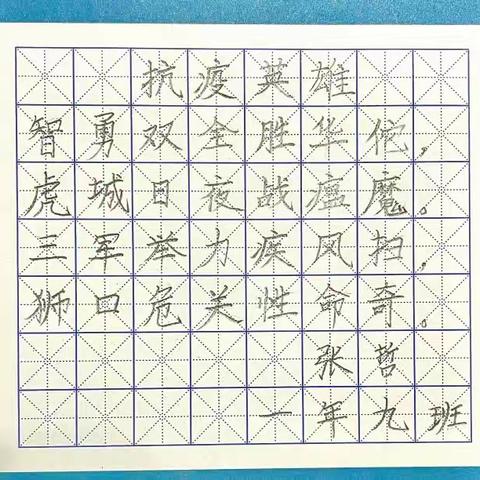 抗疫英雄
智勇双全胜华佗，
虎城日夜战瘟魔。
三军举力疾风扫，
狮口危关性命奇。
张哲
一年九班